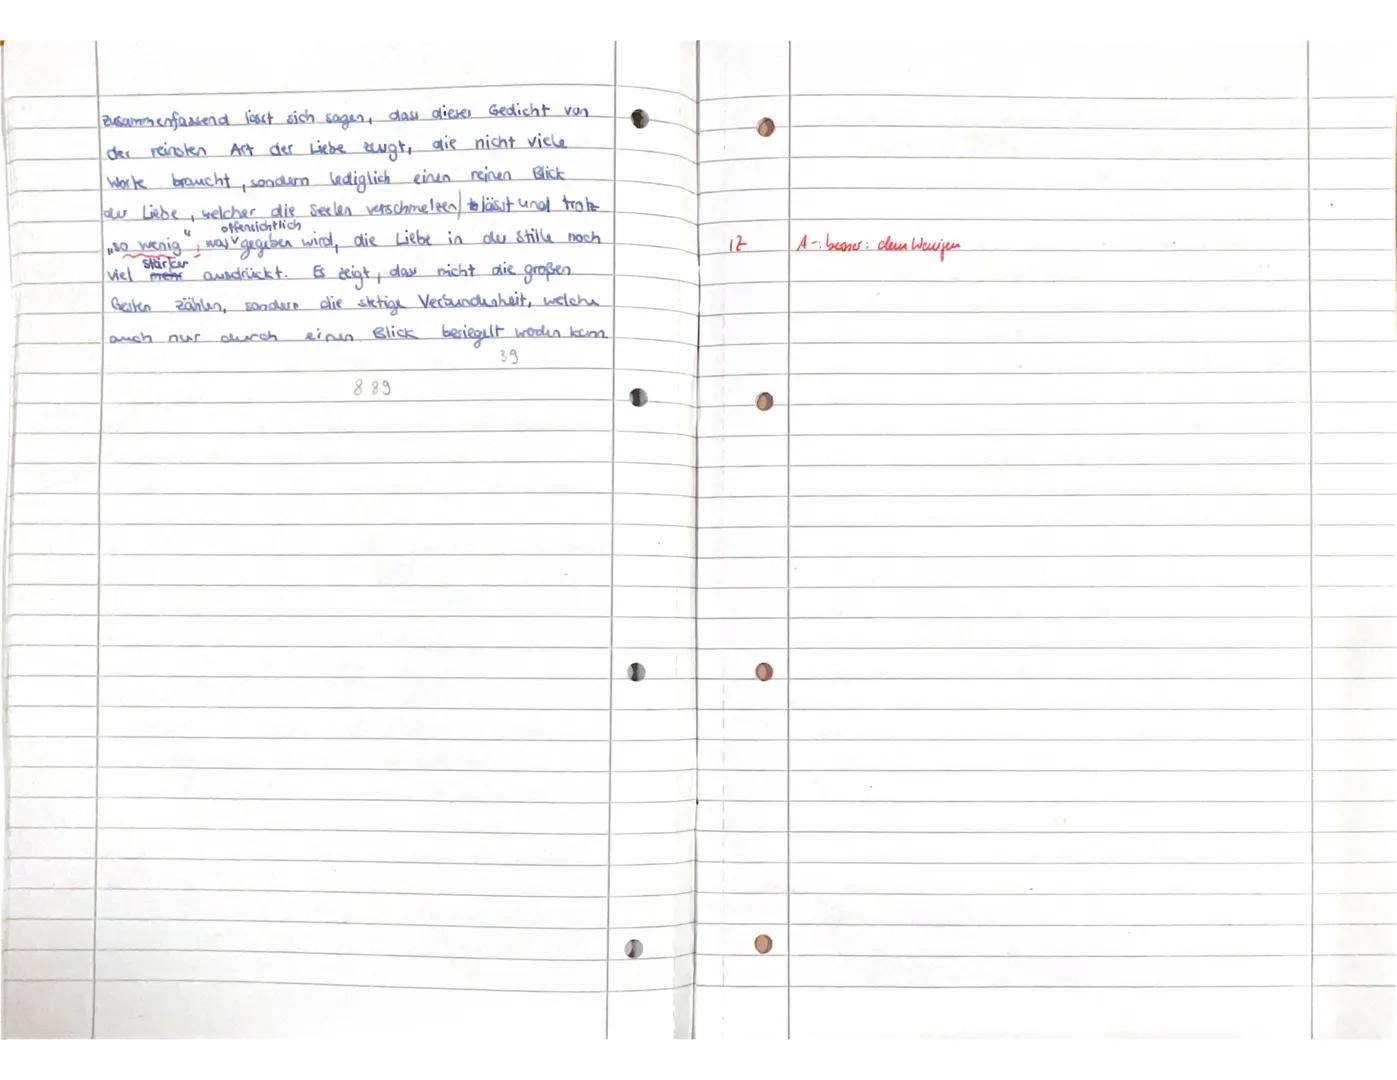 Zusammenfassend lässt sich sagen, dass dieses Gedicht von
der reinsten Art der Liebe zeugt, die nicht viele
Worte braucht, sondern lediglich einen reinen Blick
der Liebe, welcher die Seelen verschmelzen lässt und trotz
offensichtlich
„so wenig“, was gegeben wird, die Liebe in der Stille noch
stärker
viel mehr ausdrückt. Es zeigt, dass nicht die großen
Gesten zählen, sondern die stetige Verbundenheit, welche
auch nur durch einen Blick besiegelt werden kann.
39
889
17 A-: besser: dem Wenigen